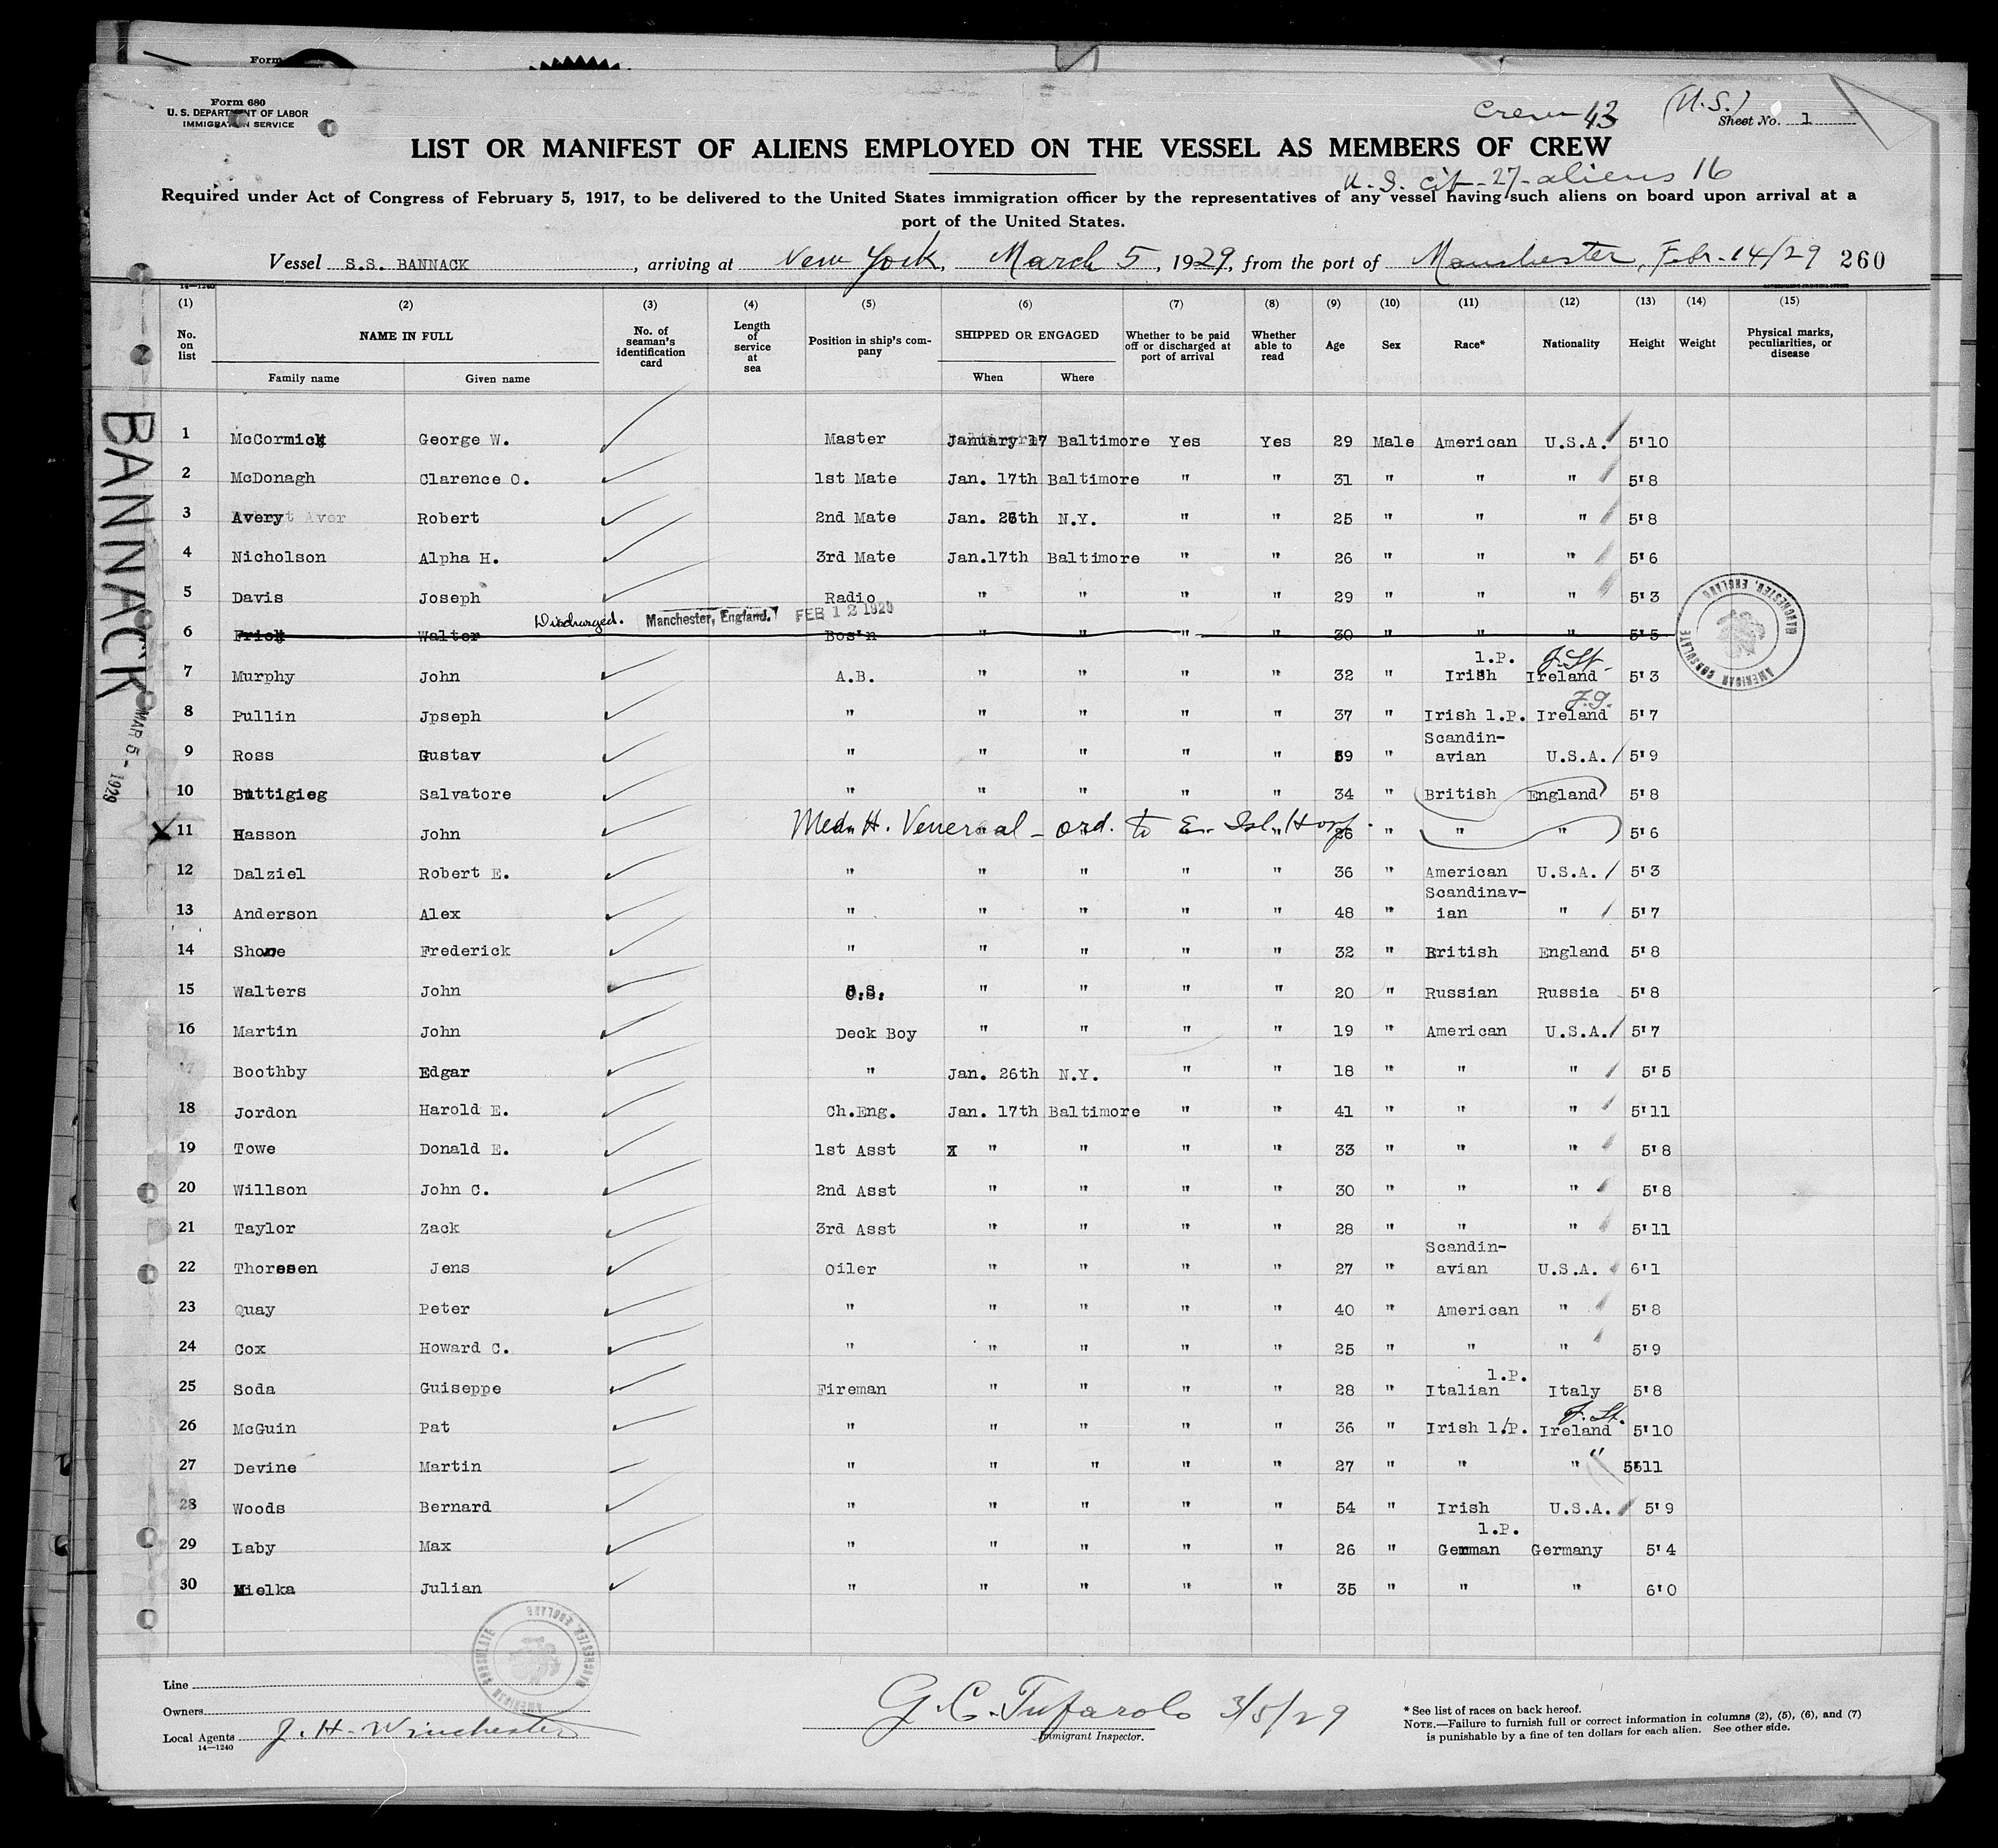 Form
Form 680
U. S. DEPARTMENT OF LABOR
IMMIGRATION SERVICE
Crew 43 (U.S.)
Sheet No. 1
LIST OR MANIFEST OF ALIENS EMPLOYED ON THE VESSEL AS MEMBERS OF CREW
U.S. cit-27-aliens 16
Required under Act of Congress of February 5, 1917, to be delivered to the United States immigration officer by the representatives of any vessel having such aliens on board upon arrival at a
port of the United States.
Vessel S.S. BANNACK, arriving at New York, March 5, 1929, from the port of Manchester, Febr. 14/29 260
14—1240
(1) (2) (3) (4) (5) (6) (7) (8) (9) (10) (11) (12) (13) (14) (15)
No. on list NAME IN FULL Family name Given name No. of seaman's identification card Length of service at sea Position in ship's company SHIPPED OR ENGAGED When Where Whether to be paid off or discharged at port of arrival Whether able to read Age Sex Race* Nationality Height Weight Physical marks, peculiarities, or disease
BANNACK
MAR 5 - 1929
1 McCormick George W. Master January 17 Baltimore Yes Yes 29 Male American U.S.A. 5'10
2 McDonagh Clarence O. 1st Mate Jan. 17th Baltimore " " 31 " " " 5'8
3 Avery Robert 2nd Mate Jan. 26th N.Y. " " 25 " " " 5'8
4 Nicholson Alpha H. 3rd Mate Jan.17th Baltimore " " 26 " " " 5'6
5 Davis Joseph Radio " " " " 29 " " " 5'3
Discharged. Manchester, England. FEB 12 1929
6 Frick Walter Bos'n " " " 30 " " " 5'5
AMERICAN CONSULATE MANCHESTER, ENGLAND
7 Murphy John A.B. " " " " 32 " Irish 1.P. Ireland 5'3
8 Pullin Jpseph " " " " " 37 " Irish 1.P. Ireland 5'7
9 Ross Gustav " " " " " 59 " Scandin-
avian U.S.A. 5'9
10 Buttigieg Salvatore " " " " " 34 " British England 5'8
11 Hasson John Med. H. Venereal - ord. to E. Isl. Hosp. 26 " " " 5'6
12 Dalziel Robert E. " " " " " 36 " American U.S.A. 5'3
13 Anderson Alex " " " " " 48 " Scandinav-
ian " 5'7
14 Shone Frederick " " " " " 32 " British England 5'8
15 Walters John O.S. " " " " 20 " Russian Russia 5'8
16 Martin John Deck Boy " " " " 19 " American U.S.A. 5'7
17 Boothby Edgar " Jan. 26th N.Y. " " 18 " " " 5'5
18 Jordon Harold E. Ch.Eng. Jan. 17th Baltimore " " 41 " " " 5'11
19 Towe Donald E. 1st Asst X " " " " 33 " " " 5'8
20 Willson John C. 2nd Asst " " " " 30 " " " 5'8
21 Taylor Zack 3rd Asst " " " " 28 " " " 5'11
22 Thoresen Jens Oiler " " " " 27 " Scandin-
avian U.S.A. 6'1
23 Quay Peter " " " " " 40 " American " 5'8
24 Cox Howard C. " " " " " 25 " " " 5'9
25 Soda Guiseppe Fireman " " " " 28 " Italian 1.P. Italy 5'8
26 McGuin Pat " " " " " 36 " Irish 1.P. Ireland 5'10
27 Devine Martin " " " " " 27 " " " 5'11
28 Woods Bernard " " " " " 54 " Irish U.S.A. 5'9
29 Laby Max " " " " " 26 " German 1.P. Germany 5'4
30 Mielka Julian " " " " " 35 " " " 6'0
AMERICAN CONSULATE MANCHESTER, ENGLAND
Line
Owners
Local Agents J. H. Winchester
14—1240
G. C. Tufarolo 3/5/29
Immigrant Inspector.
* See list of races on back hereof.
NOTE.—Failure to furnish full or correct information in columns (2), (5), (6), and (7)
is punishable by a fine of ten dollars for each alien. See other side.